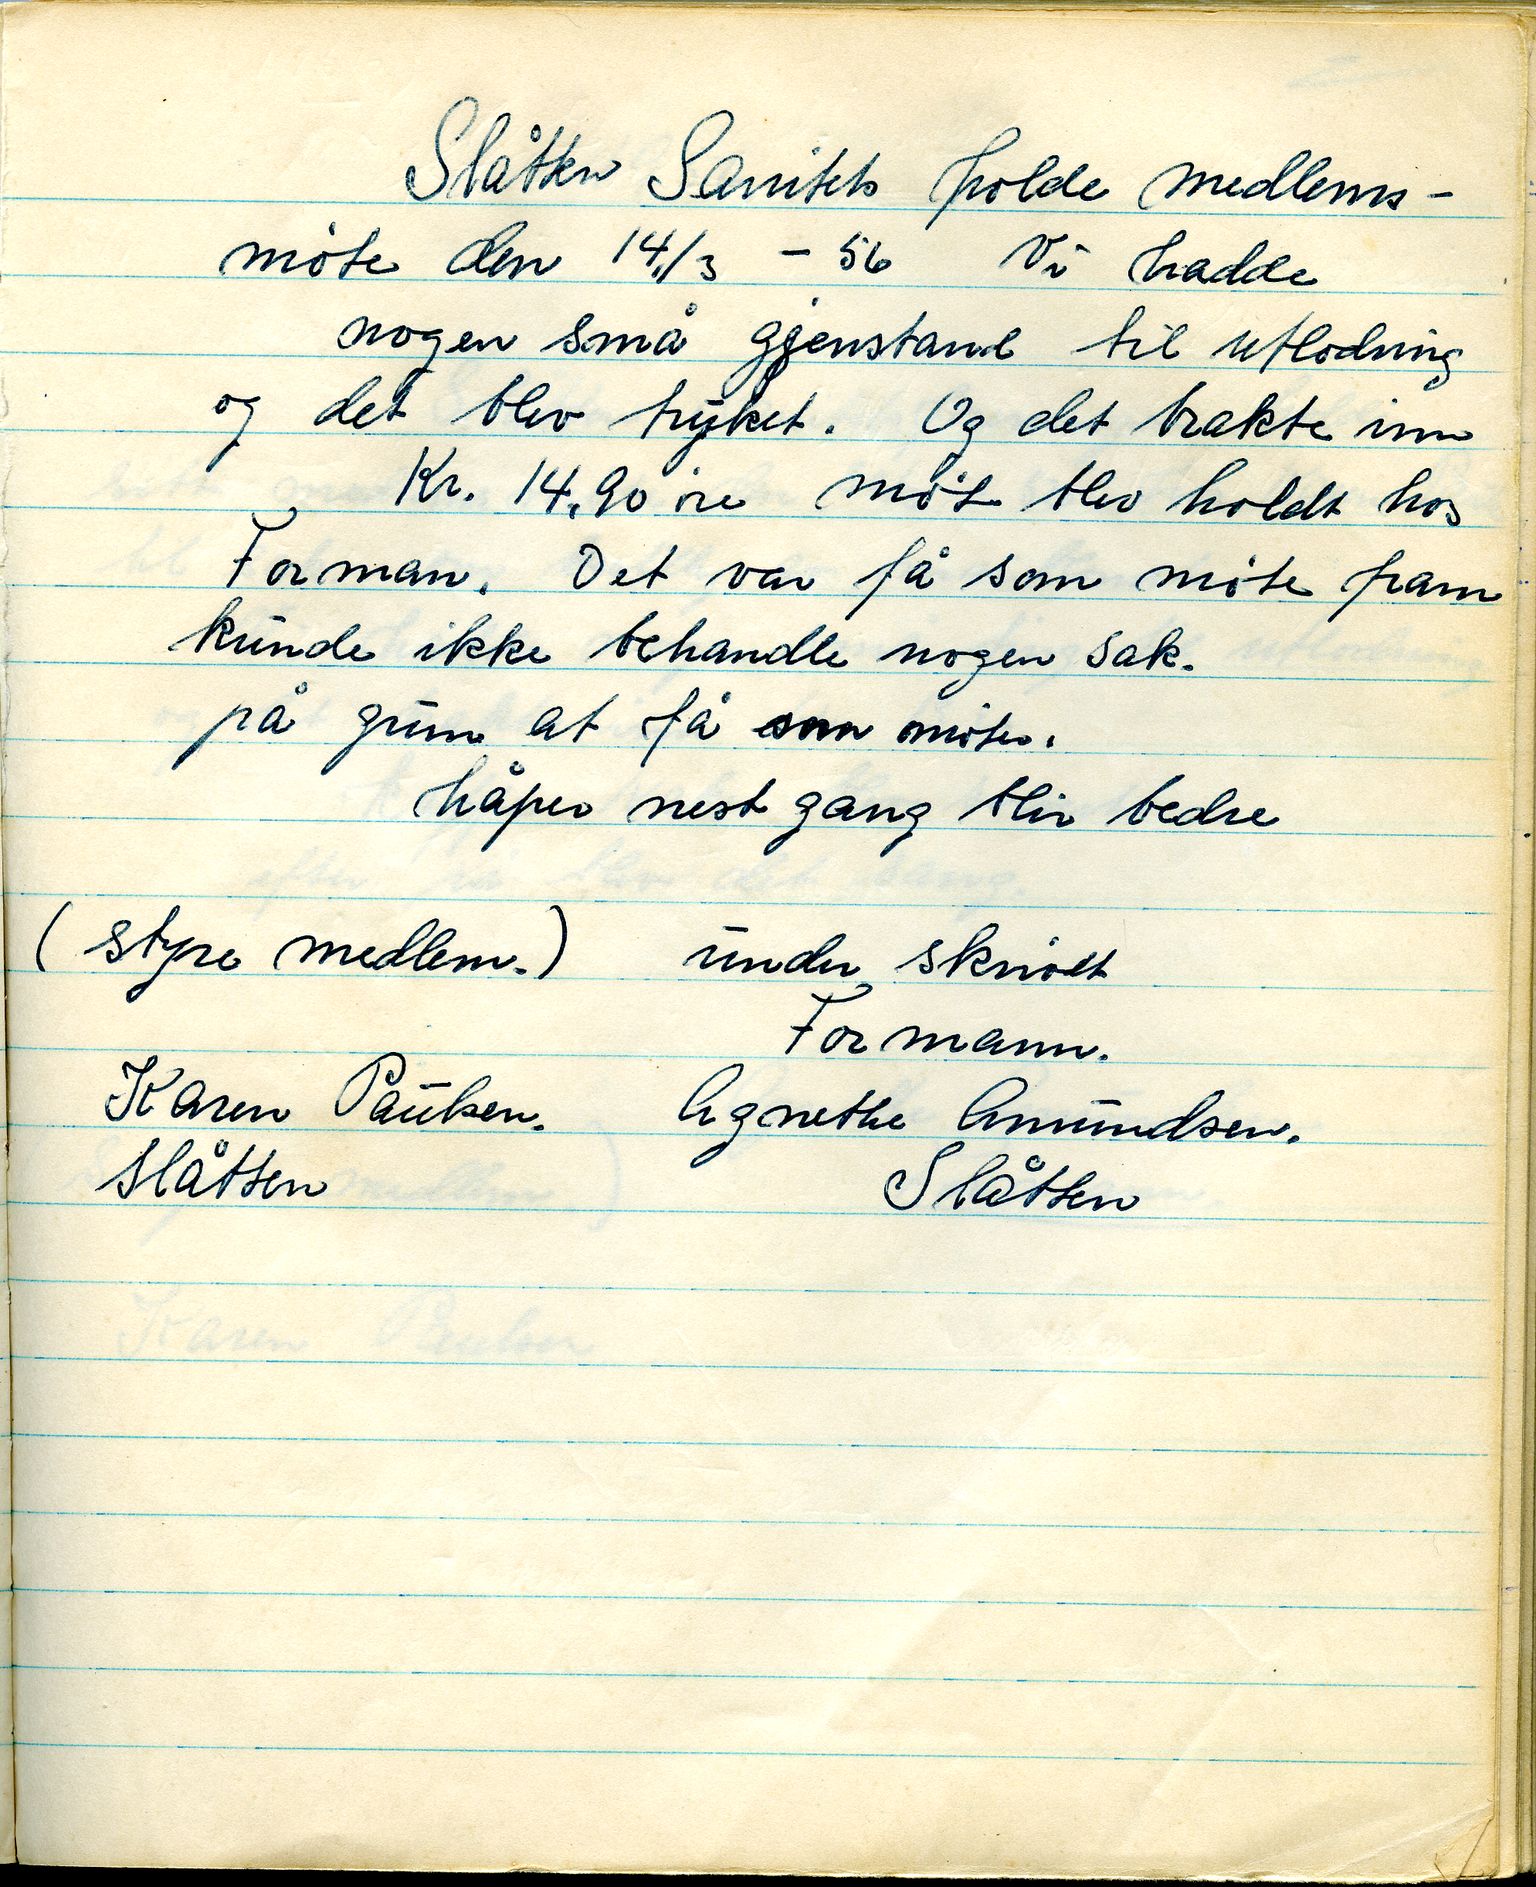 Slåtten Sanitets holde medlems-
möte den 14/3 - 56 Vi hadde
nogen små gjenstand til utlodning
og det blev tryket. Og det brakte inn
Kr. 14,90 öre möt blev holdt hos
Forman. Det var få som möte fram
kunde ikke behandle nogen sak.
på grun at få som möte.
håper nest gang blir bedre
(styre medlem.) under skrivet
Formann.
Karen Paulsen. Agnethe Amundsen.
Slåtten Slåtten